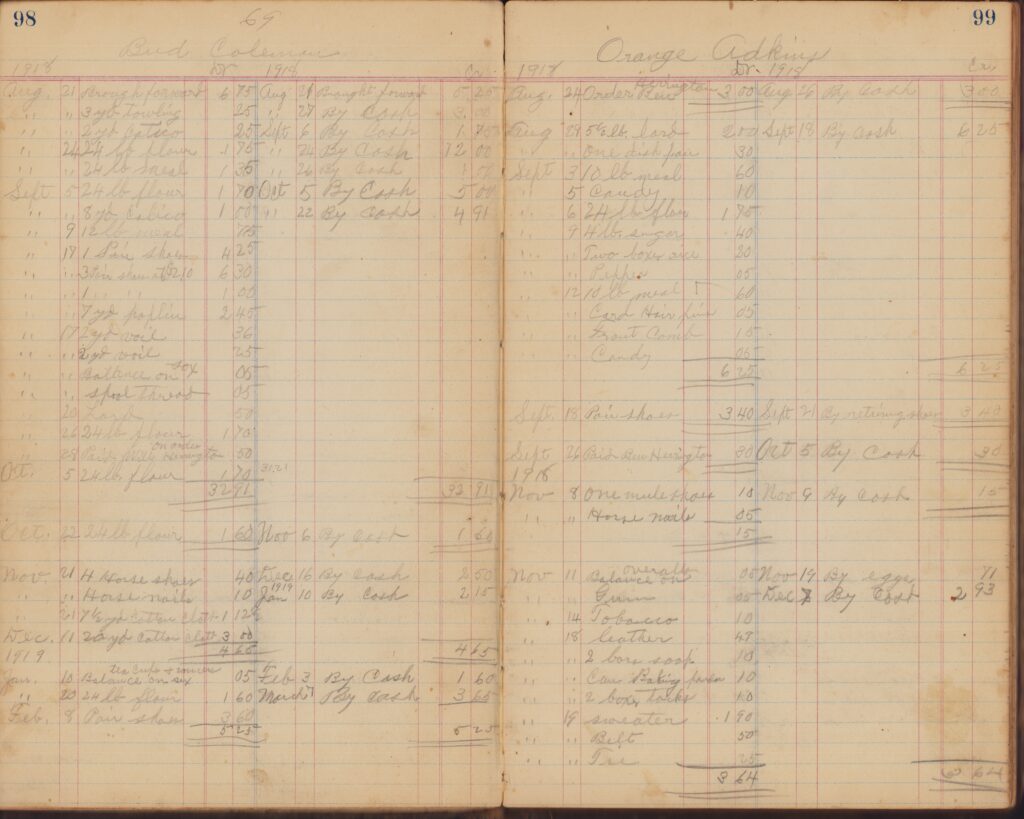 98
69
Bud Coleman
1918 Dr. 1918 Cr.
Aug. 21 Brought forward 6 75 Aug 21 Brought forward 5 25
" " 3 yd towling 25 " 27 By Cash 3 00
" " 2 yd 25 Sept 6 By Cash 1
" 24 24 lb flour 1 75 " 24 By Cash 12 00
" " 24 lb meal 1 35 " 26 By Cash
Sept 5 24 lb flour 1 70 Oct 5 By Cash 5 00
" " 8 yd Calico 1 " 22 By Cash 4 91
" 9 12 lb meal 75
" 17 1 Pair shoes 4 25
" " 3 Pair shoes at 2.10 6 30
" " 1 " " 1 00
" " 7 yd poplin 2 45
" 17 2 yd voil 36
" " 2 yd voil 25
" " Balance on sox 05
" " spool thread 05
" 20 Lard 50
" 26 24 lb flour 1 70
" 28 Paid on order Herrington 50
Oct. 5 24 lb flour 1 70
32 91 32 91
Oct. 22 24 lb flour 1 60 Nov 6 By Cash 1 60
Nov. 21 4 Horse shoes 40 Dec 16 By Cash 2 50
" " Horse nails 10 1919 Jan 10 By Cash 2 15
" 21 7½ yd cotton cloth 1 12½
Dec. 11 20 yd Cotton cloth 3 00
1919 4 65 4 65
Jan. 10 Balance on six tea cups & saucers 05 Feb 3 By Cash 1 60
" 20 24 lb flour 1 60 March 1 By Cash 3 65
Feb. 8 Pair shoes 3 60
5 25 5 25
99
Orange Adkins
1918 Dr. 1918 Cr.
Aug. 24 Order Ben Herrington 3 00 Aug 26 By Cash 3 00
Aug 29 lb. lard 2 00 Sept 18 By Cash 6 25
" " One dish pan 30
Sept. 3 10 lb meal 60
" 5 Candy 10
" 6 24 lb flour 1 75
" 9 4 lb sugar 40
" " Two boxes 20
" " Pepper 05
" 12 10 lb meal 60
" " Card Hair pins 05
" " Front Comb 15
" " Candy 05
6 25 6 25
Sept. 18 Pair shoes 3 40 Sept 21 By retiring shoes 3 40
Sept 26 Paid Ben Herrington 30 Oct 5 By Cash 30
1918
Nov 8 One mule shoes 10 Nov 9 By Cash 15
" " Horse nails 05
15
Nov 11 Balance on overalls 05 Nov 19 By eggs 71
" " Gum 05 Dec 7 By Cash 2 93
" 14 Tobacco 10
" 18 leather 49
" " 2 bars soap 10
" " Can Baking powder 10
" " 2 boxes tacks 10
" 19 sweater 1 90
" " Belt 50
" " Tie 25
3 64 3 64